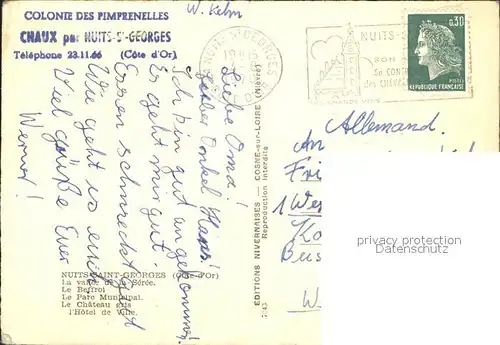 COLONIE DES PIMPRENELLES
CHAUX par NUITS-St-GEORGES
Téléphone 23.11.66 (Côte d'Or)
W. Kelm
Liebe Oma!
Lieber Onkel Hans!
Ich bin gut angekommen.
Es geht mir gut.
Essen schmeckt gut
Wie geht es euch
Viel grüße Euer
Werner!
NUITS-SAINT-GEORGES (Côte-d'Or)
La vallée de la Sérée.
Le Beffroi
Le Parc Municipal.
Le Château gris
l'Hôtel de Ville.
EDITIONS NIVERNAISES - COSNE-sur-LOIRE (Nièvre)
Reproduction Interdite
NUITS-St-GEORGES
NUITS-S
SON
Se CONT
des CHEV
GRANDS VINS
0,30
POSTES
REPUBLIQUE FRANÇAISE
Allemand.
An
1 Wes
W
privacy protection
oldthing.de